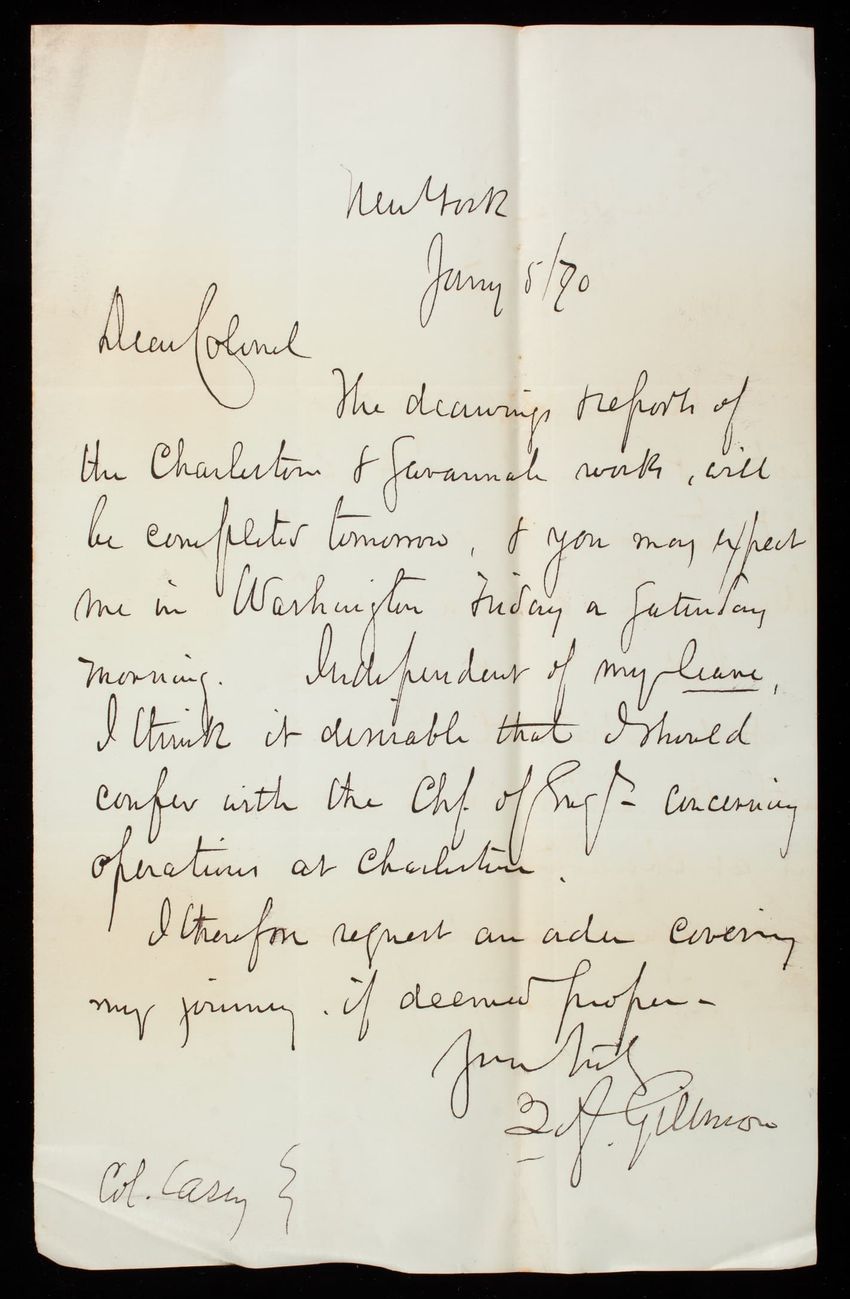 New York
Jany 5/70
Dear Colonel
The drawings & reports of
the Charleston & Savannah works, will
be completed tomorrow, & you may expect
me in Washington Friday or Saturday
morning. Independent of my leave,
I think it desirable that I should
confer with the Chf. of Engrs - concerning
operations at Charleston.
I therefore request an order covering
my journey. if deemed proper -
Yours truly
Q A. Gillmore
Col. Casey }